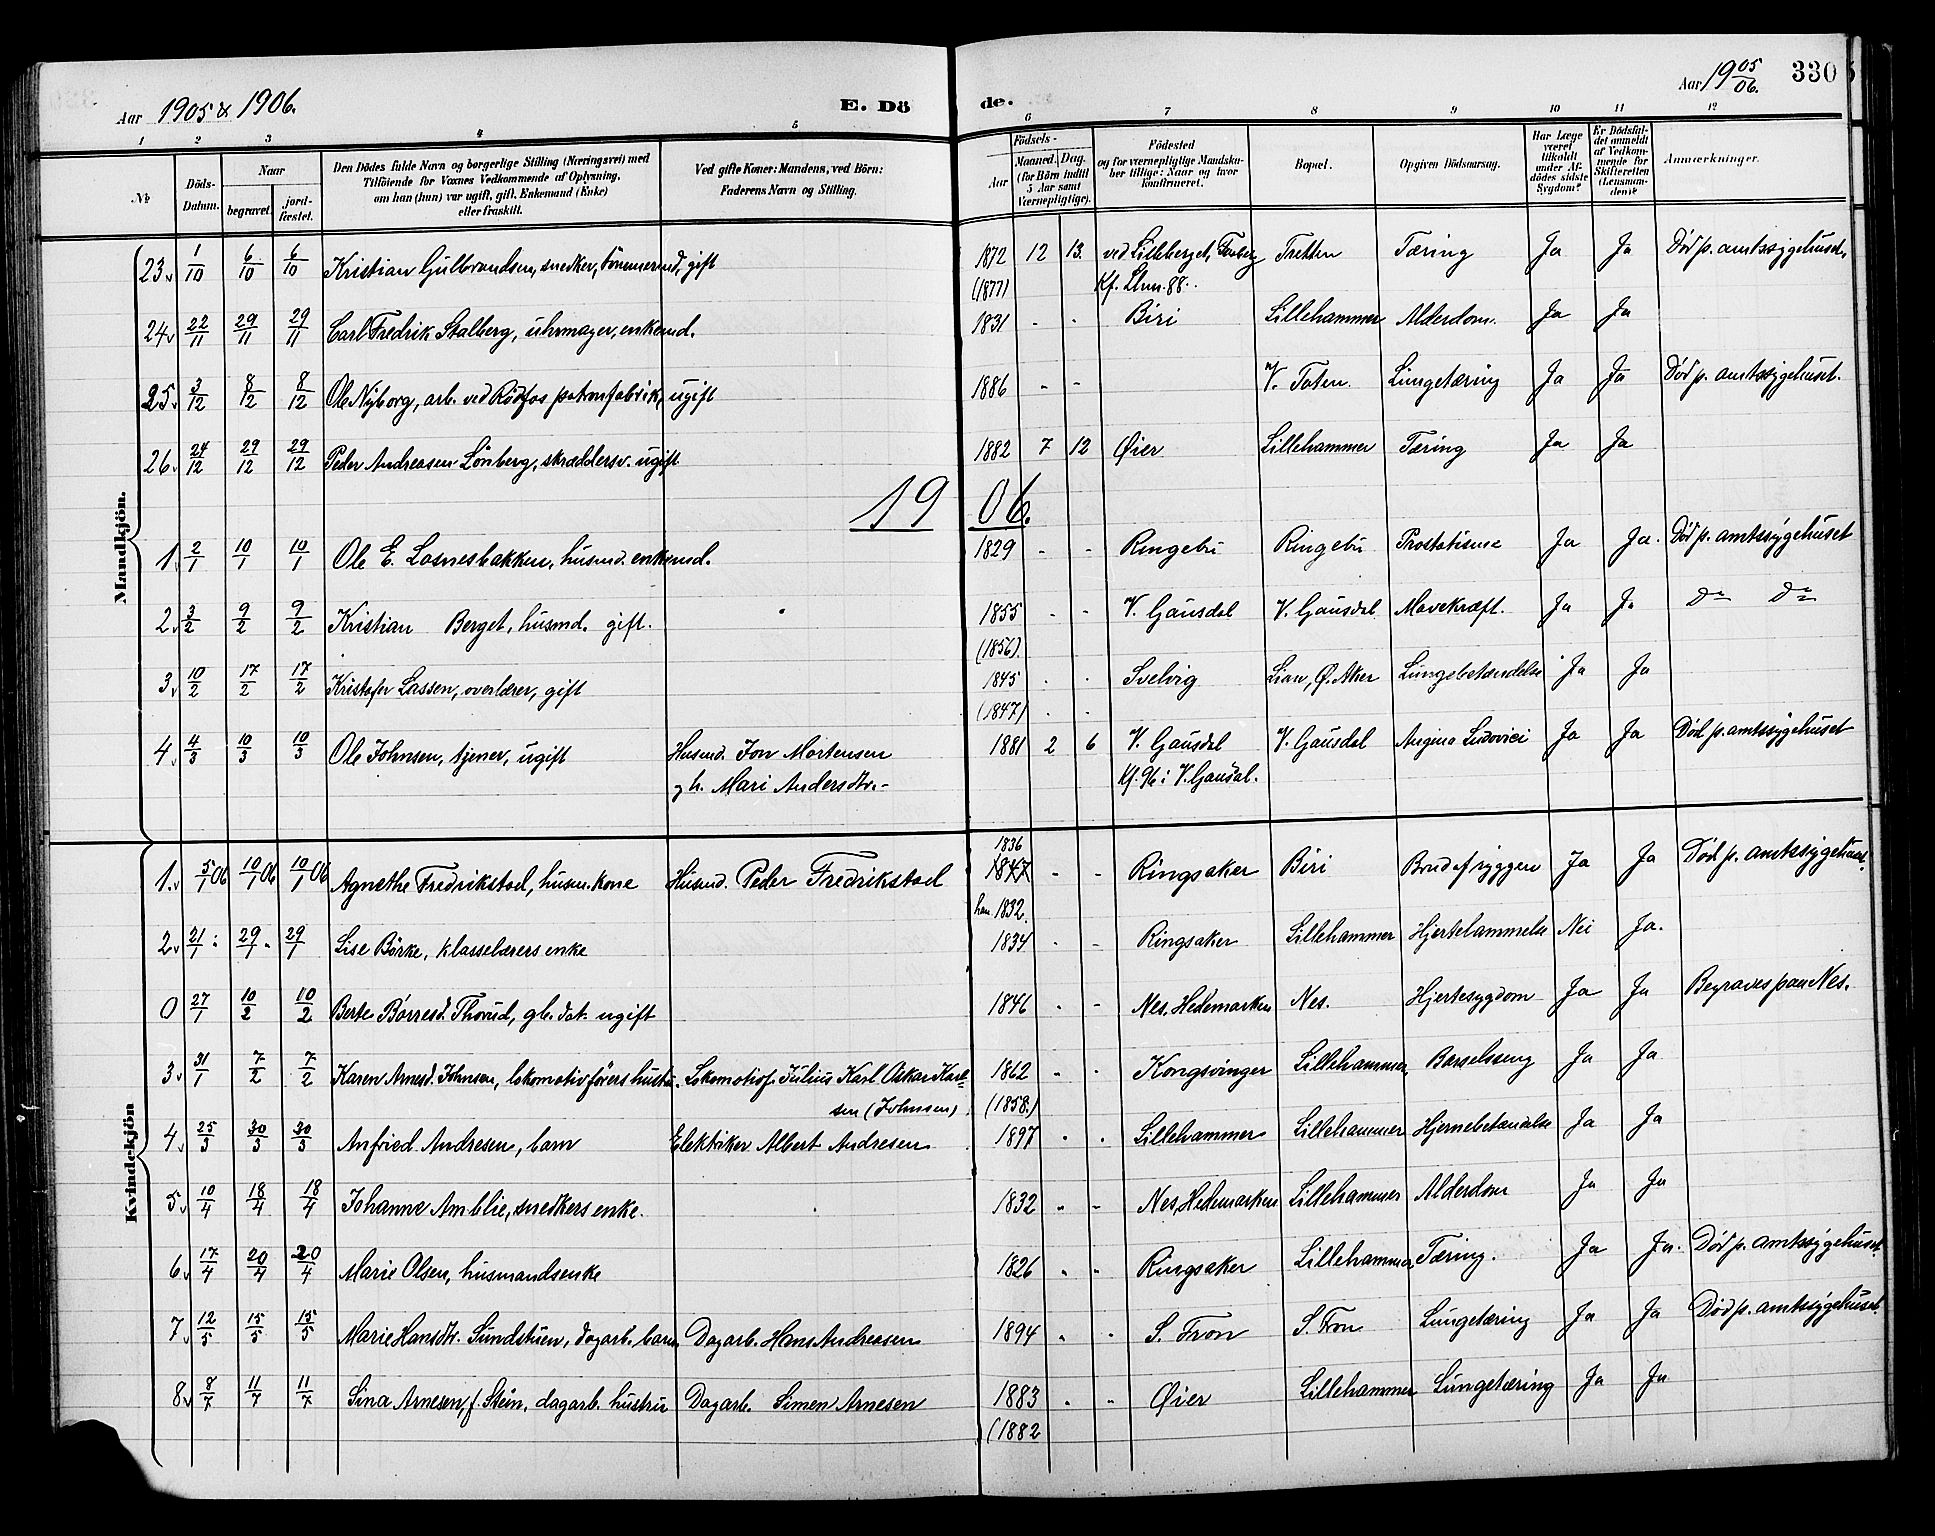 Aar 1905 & 1906.
E. Dö
de.
Aar 1905/06.
330
1 2 3 4 5 6 7 8 9 10 11 12
No
Döds-Datum.
Naar
begravet.
jord-fæstet.
Den Dödes fulde Navn og borgerlige Stilling (Næringsvei) med
Tilföiende for Voxnes Vedkommende af Oplysning,
om han (hun) var ugift, gift, Enkemand (Enke)
eller fraskilt.
Ved gifte Koner: Mandens, ved Börn:
Faderens Navn og Stilling.
Födsels-
Aar
Maaned. Dag.
(for Börn indtil
5 Aar samt
Værnepligtige).
Födested
og for værnepligtige Mandska-
ber tillige: Naar og hvor
konfirmeret.
Bopæl.
Opgiven Dödsaarsag.
Har Læge
været
tilkaldt
under Af-
dödes sidste
Sygdom?
Er Dödsfal-
det anmeldt
af Vedkom-
mende for
Skifteretten
(Lensman-
den)?
Anmærkninger.
Mandkjön.
23 1/10 6/10 6/10 Kristian Gulbrandsen, snedker, tömmermd, gift 1872 12 13. ved Lilleberget, Faaberg Tretten Tæring Ja Ja Död p. amtssygehuset,
(1877) Kf. Lhm. 88.
24 22/11 29/11 29/11 Carl Fredrik Stalberg, uhrmager, enkemd. 1831 - - Biri Lillehammer Alderdom. Ja Ja
25 3/12 8/12 8/12 Ole Nyborg, arb. ved Rödfos patronfabrik, ugift 1886 - - V. Toten. Lungetæring Ja Ja Död p. amtssygehuset.
26 24/12 29/12 29/12 Peder Andreasen Lönberg, skräddersv. ugift 1882 7 12 Øier Lillehammer Tæring Ja Ja
1906.
1 2/1 10/1 10/1 Ole E. Losnesbakken, husmd. enkemd. 1829 - - Ringebu Ringebu Prostatisme Ja Ja. Död p. amtssygehuset
2 3/2 9/2 9/2 Kristian Berget, husmd. gift. 1855 - - V. Gausdal V. Gausdal Mavekræft. Ja Ja do do
(1856).
3 10/2 17/2 17/2 Kristofer Lassen, overlærer, gift 1845 - - Svelvig Lian, Ø. Aker Lungebetændelse Ja Ja
(1847)
4 4/3 10/3 10/3 Ole Johnsen, tjener, ugift Husmd. Jon Mortensen 1881 2 6 V. Gausdal V. Gausdal Angina Ludovici Ja Ja Död p. amtssygehuset
og h. Mari Andersdtr.- Kf. 96 i V. Gausdal.
Kvindekjön
1836
1. 5/1 06 10/1 06 10/1 06 Agnethe Fredrikstad, husm. kone Husmd. Peder Fredrikstad 1847 - - Ringsaker Biri Brud af ryggen Ja Ja Död p. amtssygehuset.
han. 1832.
2 21/1 29/1 29/1 Lise Börke, klasselærers enke 1834 - - Ringsaker Lillehammer Hjertelammelse Nei Ja.
0 27/1 10/2 10/2 Berte Börresd. Thorud, gb. dat. ugift 1846 - - Nes, Hedemarken Nes. Hjertesygdom Ja Ja Begraves paa Nes.
3 31/1 7/2 7/2 Karen Arnesd. Johnsen, lokomotivförers hustru. Lokomotivf. Julius Karl Oskar Karl- 1862 - - Kongsvinger Lillehammer, Barselseng Ja Ja
sen (Johnsen) (1858.)
4 25/3 30/3 30/3 Anfried Andresen, barn Elektriker Albert Andresen 1897 - - Lillehammer Lillehammer Hjernebetændelse Ja Ja
5 10/4 18/4 18/4 Johanne Amblie, snedkers enke. 1832 - - Nes, Hedemarken Lillehammer Alderdom Ja Ja
6 17/4 20/4 20/4 Marie Olsen, husmandsenke 1826 - - Ringsaker Lillehammer, Tæring. Ja Ja. Död p. amtssygehuset.
7 12/5 15/5 15/5 Marie Hansdtr. Sundstuen, dagarb. barn, Dagarb. Hans Andreasen 1894 - - S. Fron S. Fron Lungetæring Ja Ja Död p. amtssygehuset.
8 8/7 11/7 11/7 Sina Arnesen, f. Stein, dagarb. hustru Dagarb. Simen Arnesen 1883 - - Øier Lillehammer Lungetæring Ja Ja
(1882